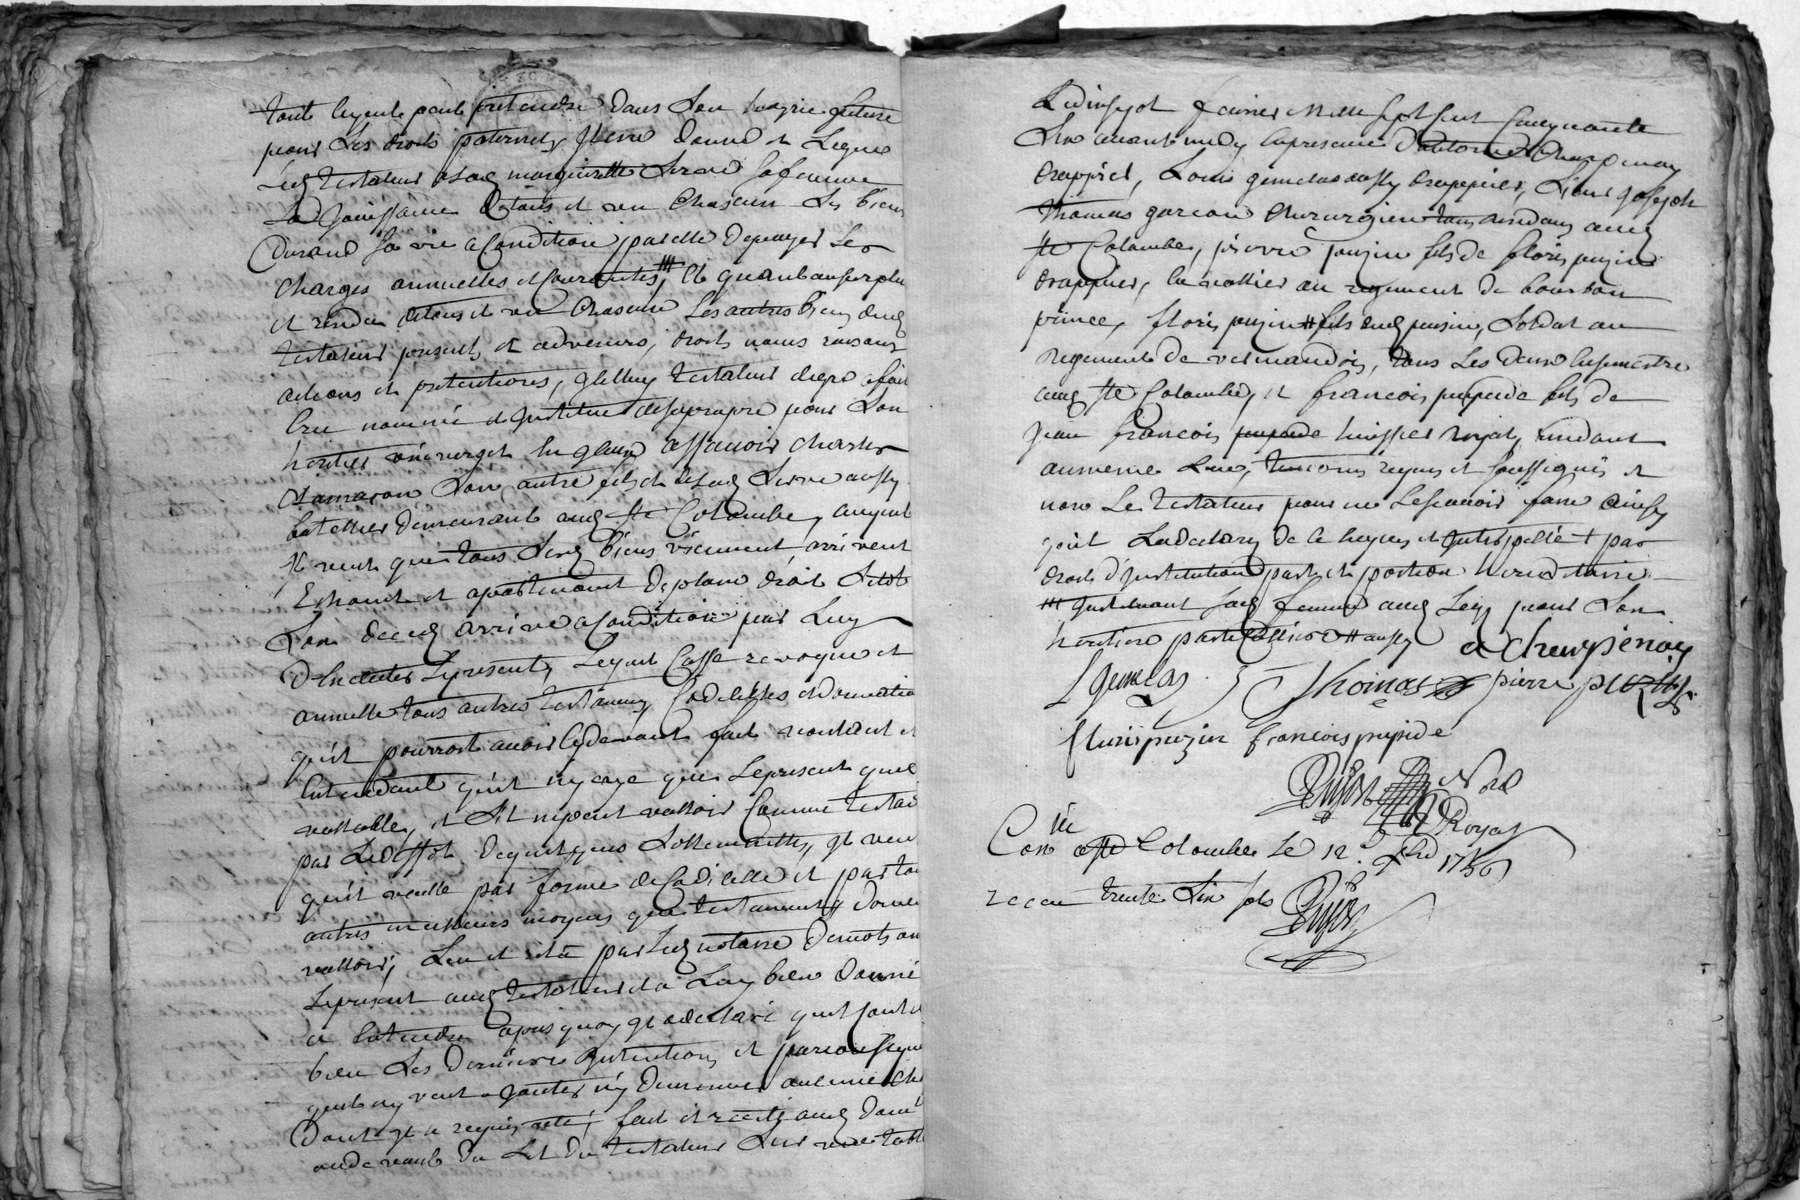 toute layente peut pretendre dans son hoyrie future
pour ses droits paternels, Item donne et Legue
Led testateur a lad margueritte Sirou sa femme
La Jouissance de tous et un chascun ses biens
Durand sa vie a Condition par elle de payer les
charges annuelles et courantes, Et quant au surplus
et residu de tous et un chascun Les autres biens dud
testateur presents et advenirs, droits noms raisons
actions et pretentions, Iceluy testateur de gré a fait
Cree nommé et Institue de sa propre pour son
heritier universel et general assavoir charles
son autre fils et de lad Sirou aussy
batellier demeurant aud Ste Colombe, auquel
Il veut que tous sesd biens viennent arrivent
Echoient et apartiennent de plain droit sitot
son deced arrive a Condition pour Luy
D'Executer le present, Lequel Casse revoque et
annulle tous autres testamens Codicilles et donnations
qu'il pourroit avoir cy devant fait voulant et
Entendant qu'il n'y aye que le present que
vallable, et s'il ne peut valloir Comme testam
par Le deffot de quelques sollemnittés, Il veut
qu'il veille par forme de Codicille et par tous
autres meilleurs moyens que testaments doivent
valloir, Leu et relu par led notaire de mots en
Le present aud testateur et a Luy bien donné
a Entendre apres quoy Il a declaré qu'il contient
bien ses dernieres Intentions, et par consequent
qu'il n'y veut ajouter ny diminuer aucune chose
Dont Il a requis acte, fait et recité aud
au devant du Lit du testateur
Le dix sept Janvier Mille sept cent Cinquante
Six avant midy en presence d'antoine Champenoy
drappier, Louis gemelas aussy drappier, Sieur Joseph
thomas garcon chirurgien tous residans aud
Ste Colombe, pierre puzin fils de floris puzin
drappier, Cavallier au regiment de bourbon
prince, floris puzin fils dud puzin, Soldat au
regiment de vermandois, tous Les deux en semestre
aud Ste Colombe, et francois pupide fils de
Jean francois pupide huissier royal, residant
au meme Lieu, temoins requis et soussignés et
non Le testateur pour ne Le scavoir faire ainsy
qu'il La declaré de ce Enquis et Interpellé + par
droit d'Institution part et portion hereditaire
Instituant sad femme aud Leg pour son
heritiere particuliere aussy a champenoy
L Gemelas J Thomas pierre puzin
fluris puzin francois pupide
Dujost Nore
Royal
Con lé a Ste Colombe Le 12 xbre 1756
receu trente Six sols Dujost